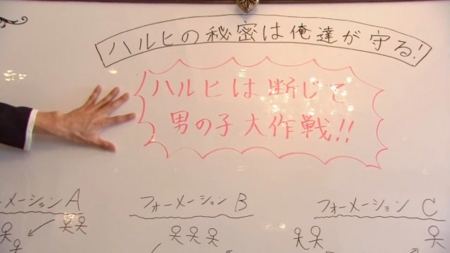 ハルヒの秘密は俺達が守る!
ハルヒは断じて
男の子大作戦!!
ーメーション A
フォーメーション B
フォーメーション C